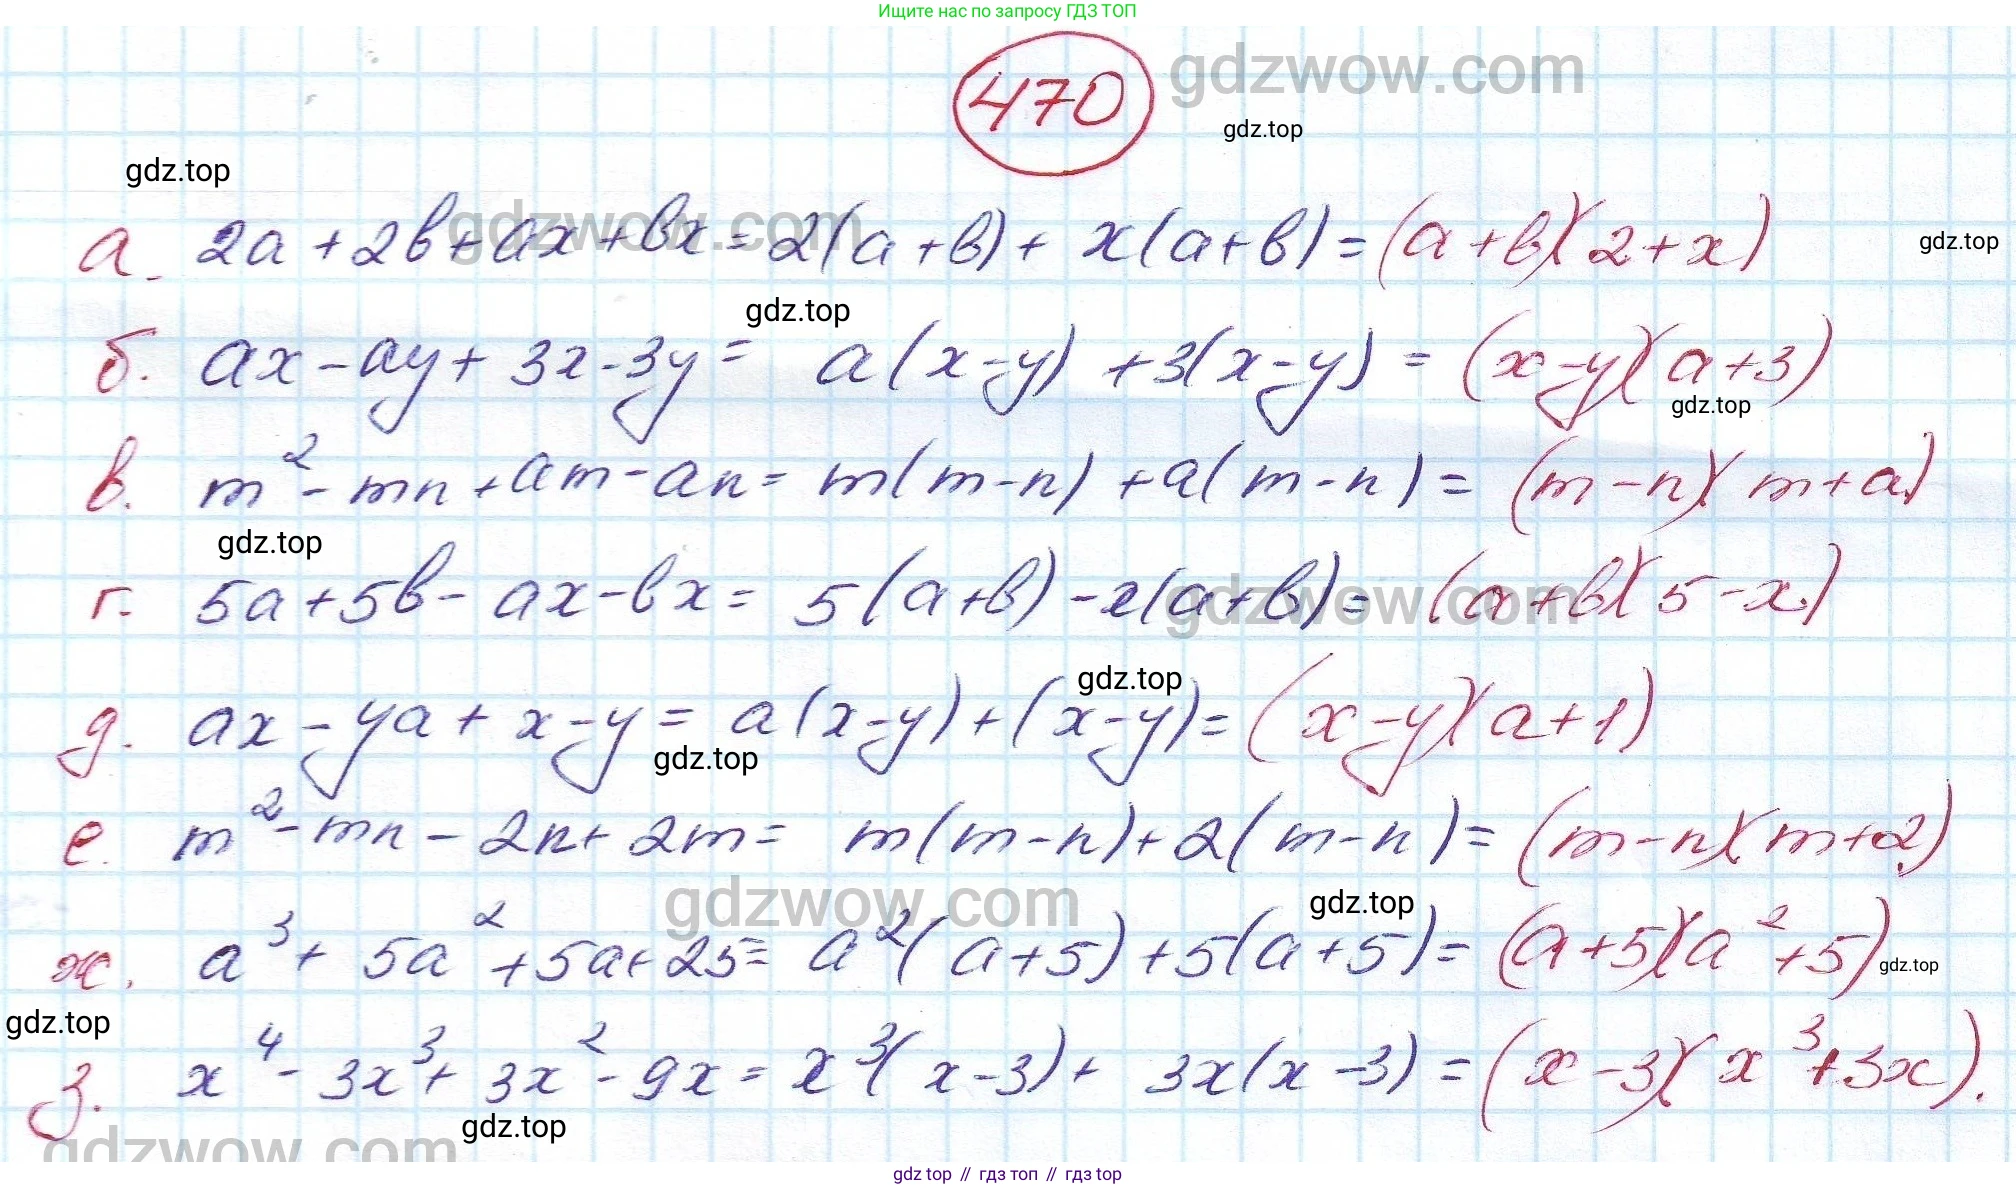 Ищите нас по запросу ГДЗ ТОП
470
gdzwow.com
gdz.top
gdz.top
gdzwow.com
а. 2a + 2в + ax + вx = 2(a + в) + x(a + в) = (a + в)(2 + x)
gdz.top
gdz.top
б. ax - ay + 3x - 3y = a(x - y) + 3(x - y) = (x - y)(a + 3)
gdz.top
в. m² - mn + am - an = m(m - n) + a(m - n) = (m - n)(m + a)
gdz.top
г. 5a + 5в - ax - вx = 5(a + в) - x(a + в) = (a + в)(5 - x)
gdzwow.com
gdz.top
д. ax - ya + x - y = a(x - y) + (x - y) = (x - y)(a + 1)
gdz.top
е. m² - mn - 2n + 2m = m(m - n) + 2(m - n) = (m - n)(m + 2)
gdzwow.com
gdz.top
ж. a³ + 5a² + 5a + 25 = a²(a + 5) + 5(a + 5) = (a + 5)(a² + 5)
gdz.top
gdz.top
з. x⁴ - 3x³ + 3x² - 9x = x³(x - 3) + 3x(x - 3) = (x - 3)(x³ + 3x).
gdz.top
gdzwow.com
gdz.top // гдз топ // гдз top